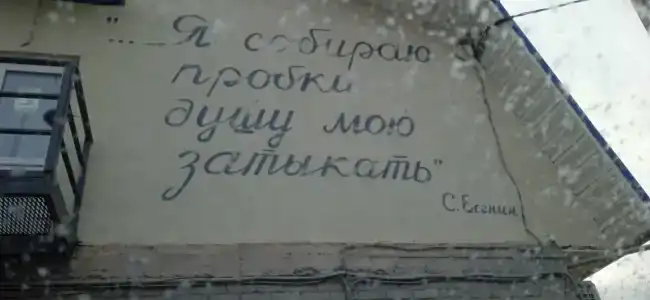 "... Я собираю
пробки
душу мою
затыкать"
С. Есенин